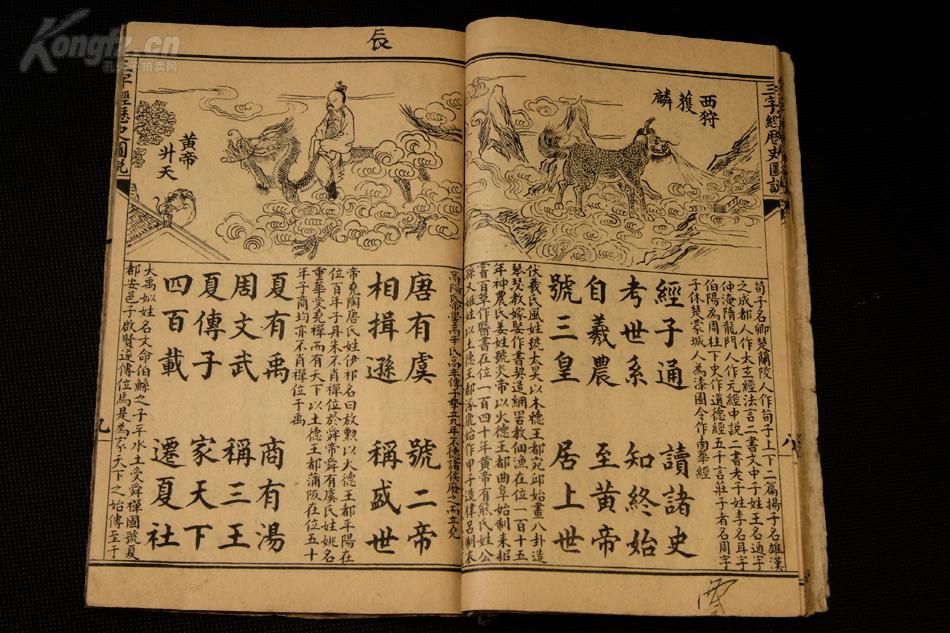 Kongfz.cn
辰
三字經歷史圖說
西狩
獲
麟
荀子名卿楚蘭陵人作荀子上下二篇揚子名雄漢
之成都人作太玄經法言二書文中子姓王名通字
仲淹隋龍門人作元經中說二書老子姓李名耳字
伯陽為周柱下史作道德經五千言莊子者名周字
子休楚蒙城人為漆園令作南華經
經子通 讀諸史
考世系 知終始
自羲農 至黃帝
號三皇 居上世
伏羲氏風姓號太昊以木德王都宛邱始畫八卦造
琴瑟教嫁娶作書契造網罟教佃漁在位一百十五
年神農氏姜姓號炎帝以火德王都曲阜始制耒耜
嘗百草作醫書在位一百四十年黃帝有熊氏姓公
孫又姬姓以土德王都涿鹿始作甲子造律呂制衣
八
黃帝
升天
高陽氏帝嚳高辛氏
唐有虞 號二帝
相揖遜 稱盛世
帝堯陶唐氏姓伊祁名曰放勲以火德王都平陽在
位百年子丹朱不肖禪位於舜帝舜有虞氏姓姚名
重華受堯禪而有天下以土德王都蒲阪在位五十
年子商均亦不肖禪位于禹
夏有禹 商有湯
周文武 稱三王
夏傳子 家天下
四百載 遷夏社
大禹姒姓名文命伯鯀之子平水土受舜禪國號夏
都安邑子啟賢遂傳位焉是為家天下之始傳至于
三字經歷史圖說
九